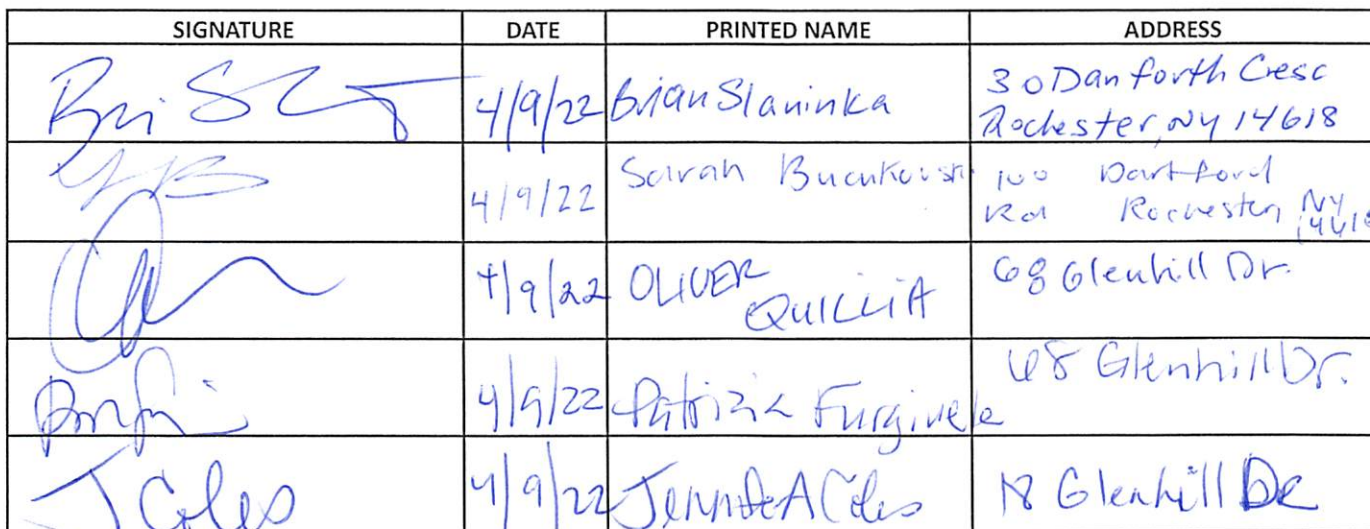 SIGNATURE DATE PRINTED NAME ADDRESS
4/9/22 Brian Slaninka 30 Danforth Cresc
Rochester, NY 14618
4/9/22 Sarah 100 Dartford
Rd Rochester, NY
14618
4/9/22 OLIVER 68 Glenhill Dr.
4/9/22 Patrizia Furgiuele 68 Glenhill Dr.
J Coles 4/9/22 Jennifer A Coles 18 Glenhill DR